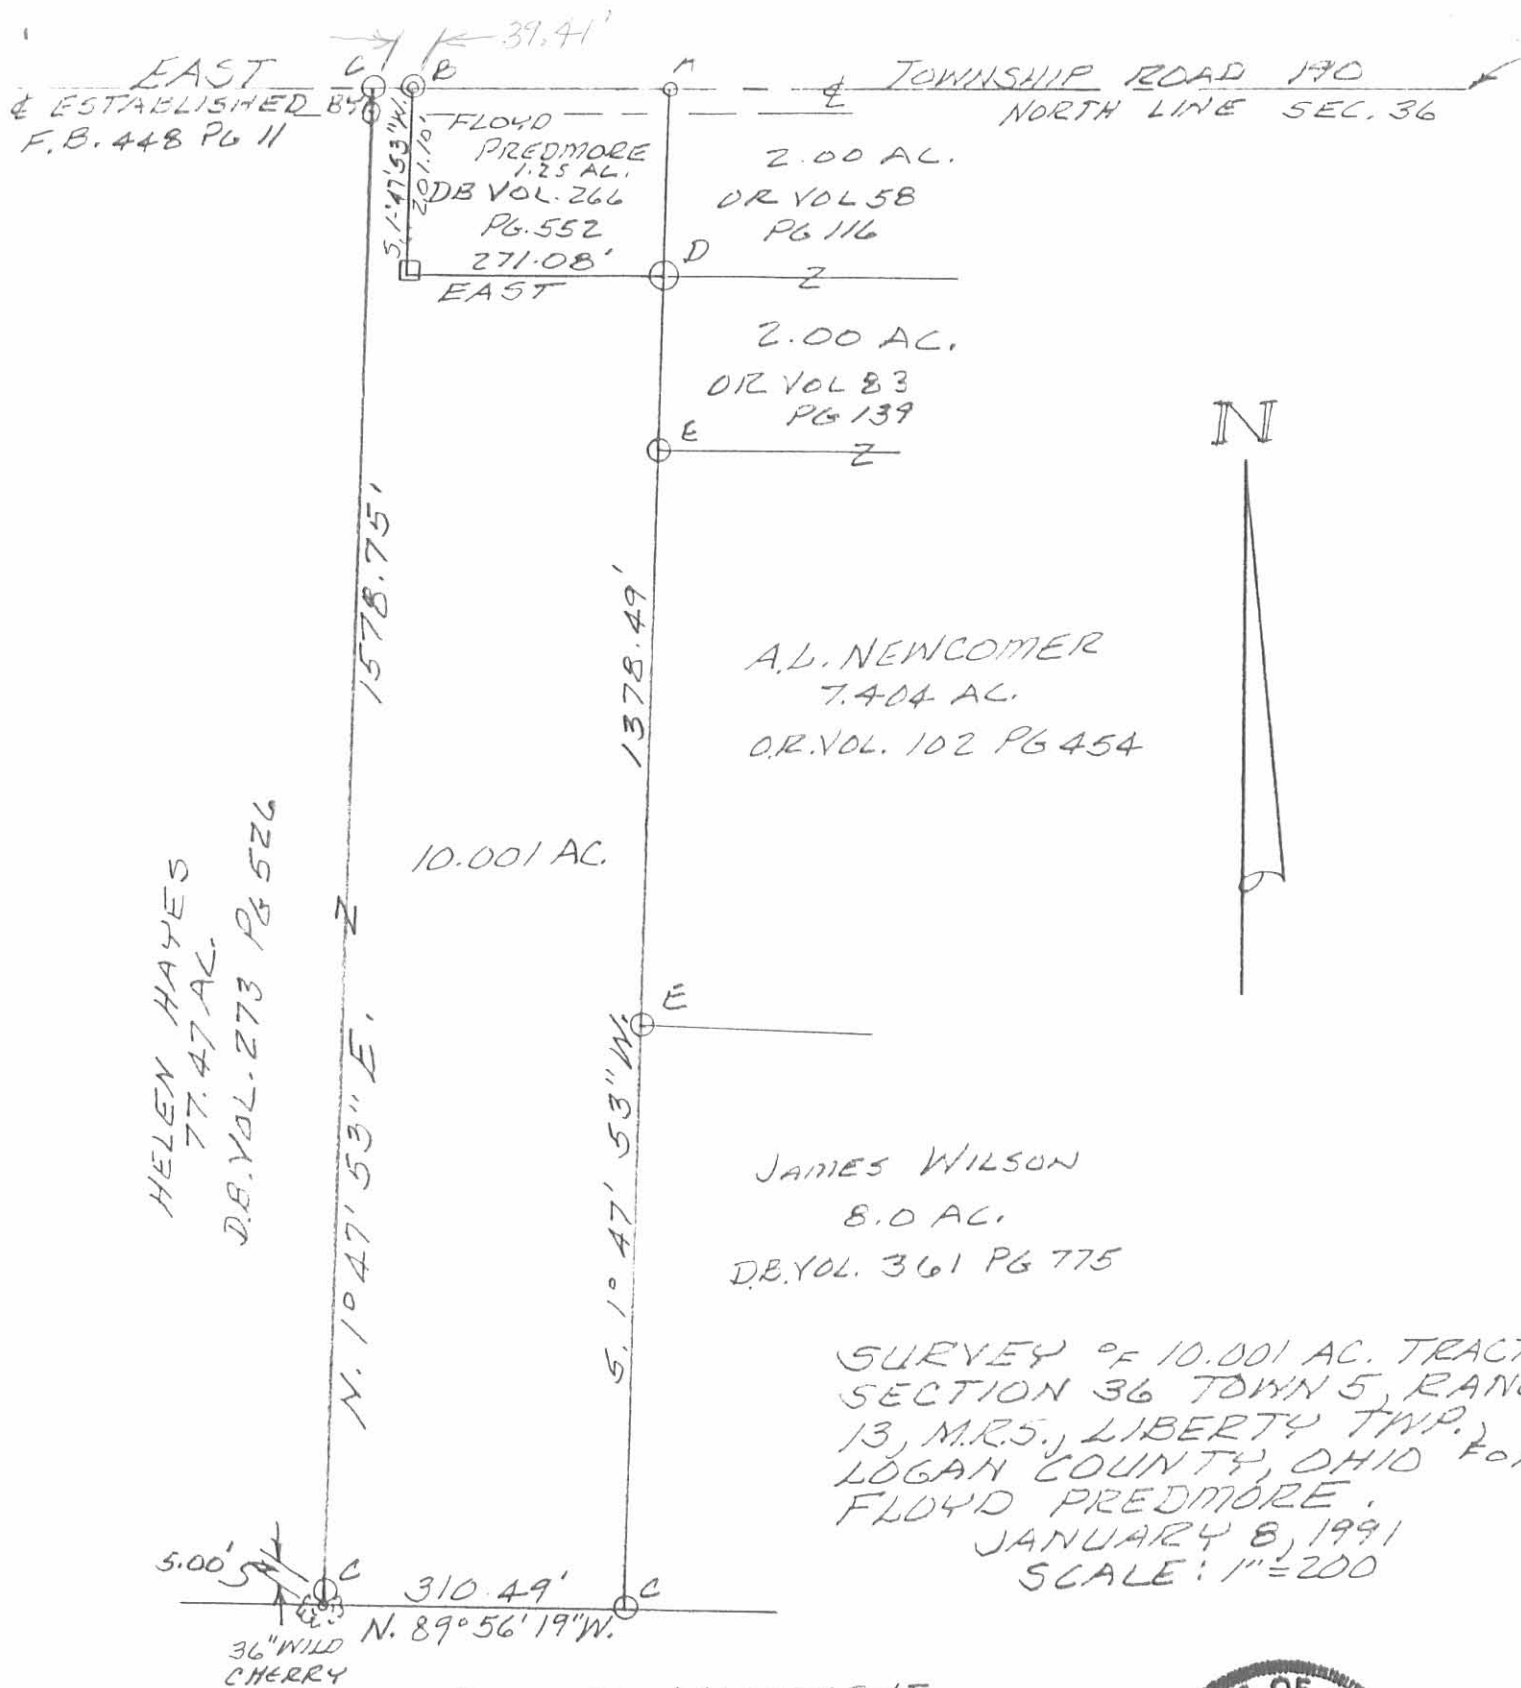 39.41'
EAST
C
B
A
℄ TOWNSHIP ROAD 190
℄ ESTABLISHED BY
F.B. 448 PG 11
NORTH LINE SEC. 36
S. 1° 47' 53" W.
201.10'
FLOYD
PREDMORE
1.25 AC.
DB VOL. 266
PG. 552
271.08'
EAST
2.00 AC.
OR VOL 58
PG 116
D
Z
2.00 AC.
OR VOL 83
PG 139
E
Z
N
1578.75'
1378.49'
A.L. NEWCOMER
7.404 AC.
O.R. VOL. 102 PG 454
10.001 AC.
HELEN HAYES
77.47 AC.
D.B. VOL. 273 PG 526
Z
N. 1° 47' 53" E.
E
S. 1° 47' 53" W.
JAMES WILSON
8.0 AC.
D.B. VOL. 361 PG 775
SURVEY OF 10.001 AC. TRACT
SECTION 36 TOWN 5, RANG
13, M.R.S., LIBERTY TWP.,
LOGAN COUNTY, OHIO FOR
FLOYD PREDMORE.
JANUARY 8, 1991
SCALE: 1"=200
5.00'
C
310.49'
C
N. 89° 56' 19" W.
36" WILD
CHERRY
OF